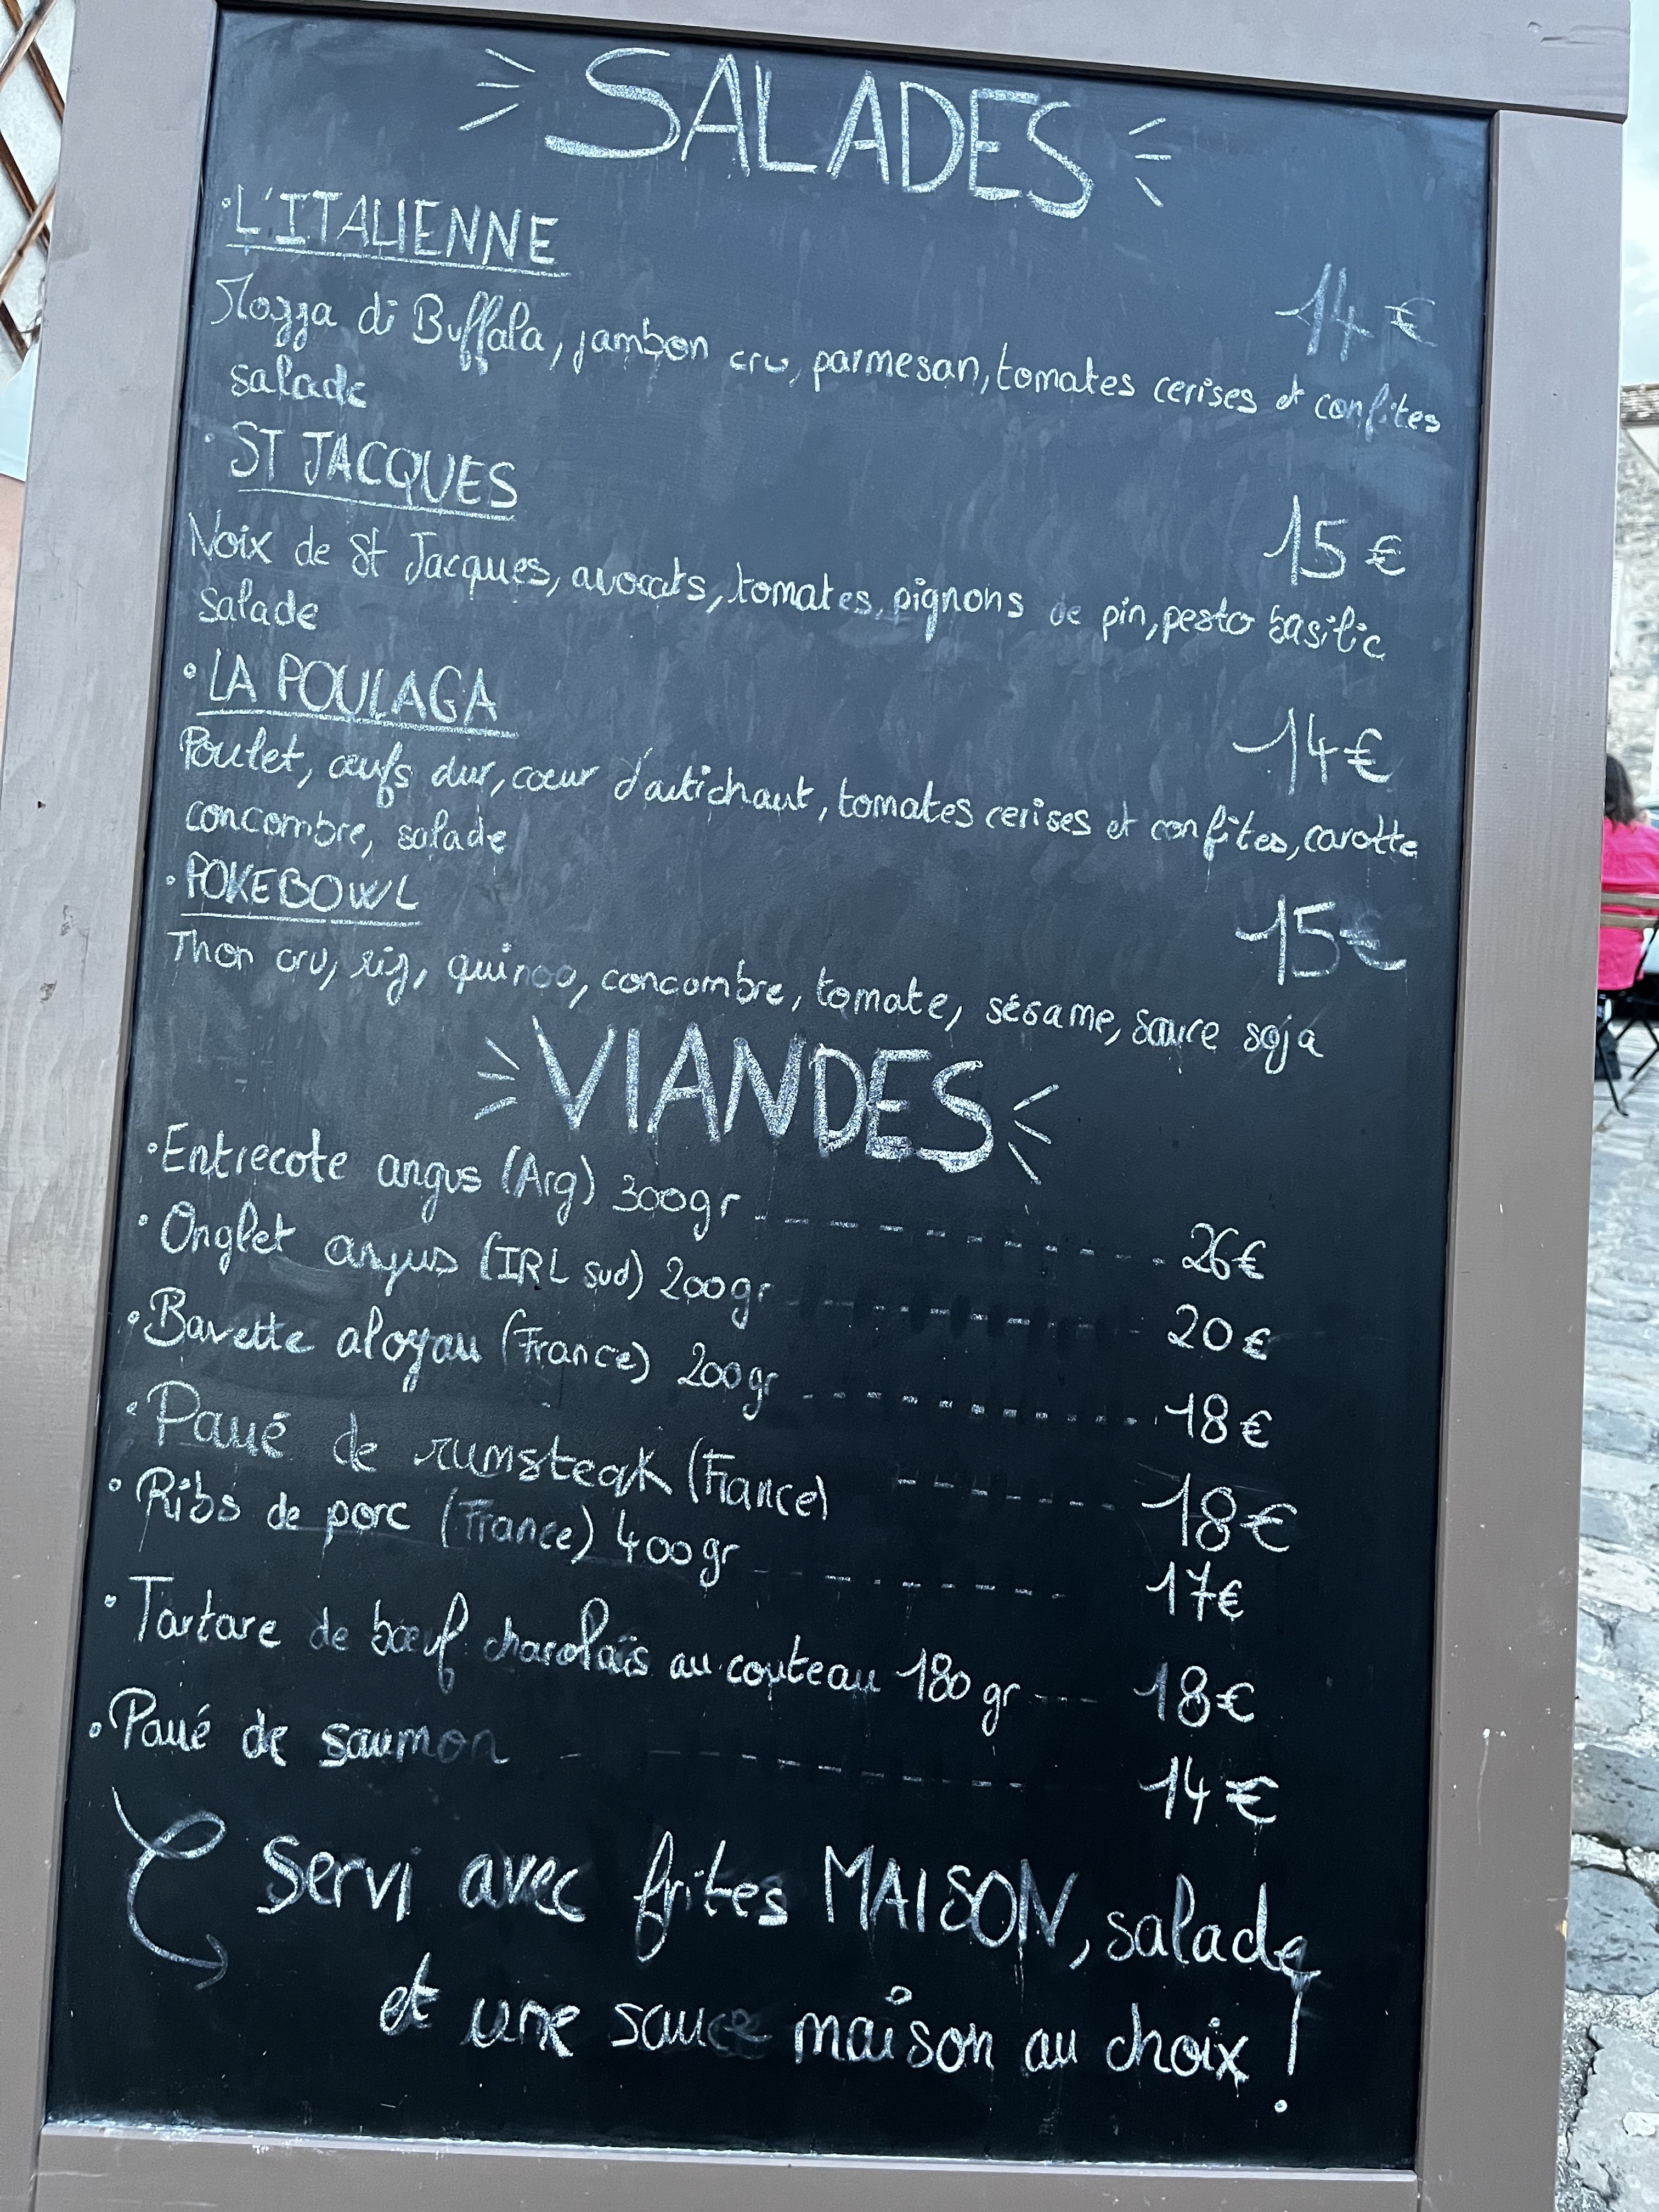 SALADES
· L'ITALIENNE
14 €
Mozza di Buffala, jambon cru, parmesan, tomates cerises et confites
salade
· ST JACQUES
15 €
Noix de St Jacques, avocats, tomates, pignons de pin, pesto basilic
salade
· LA POULAGA
14 €
Poulet, œufs dur, cœur d'artichaut, tomates cerises et confites, carotte
concombre, salade
· POKEBOWL
15 €
Thon cru, riz, quinoa, concombre, tomate, sésame, sauce soja
VIANDES
· Entrecote angus (Arg) 300gr ----------- 26€
· Onglet angus (IRL sud) 200gr ----------- 20€
· Bavette aloyau (France) 200gr ----------- 18€
· Pavé de rumsteak (France) -------- 18€
· Ribs de porc (France) 400gr --------- 17€
· Tartare de bœuf charolais au couteau 180 gr --- 18€
· Pavé de saumon ------------ 14€
Servi avec frites MAISON, salade
et une sauce maison au choix !